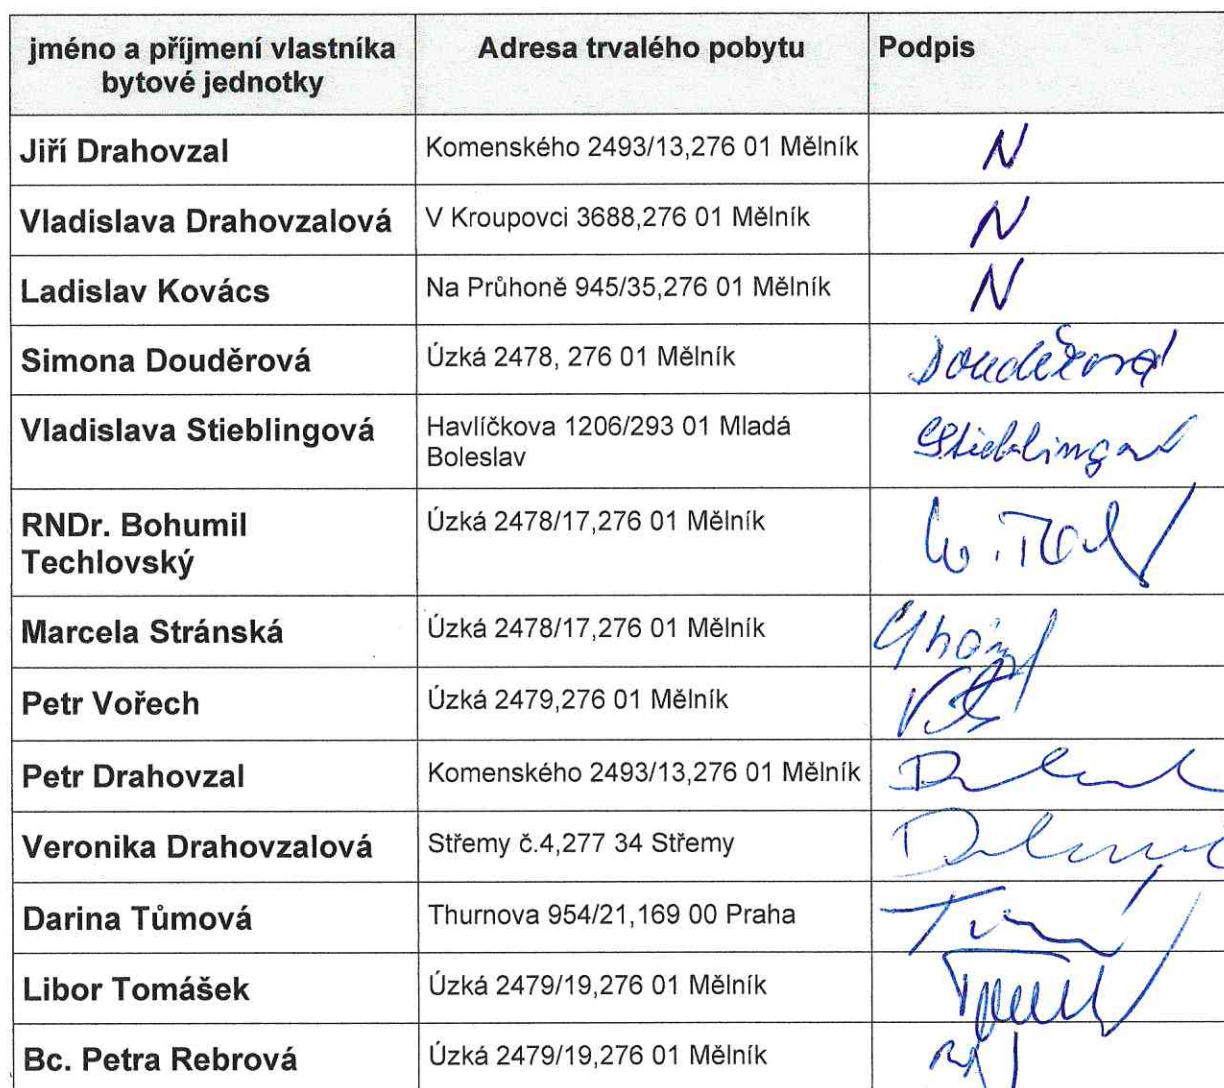 jméno a příjmení vlastníka bytové jednotky Adresa trvalého pobytu Podpis
Jiří Drahovzal Komenského 2493/13,276 01 Mělník N
Vladislava Drahovzalová V Kroupovci 3688,276 01 Mělník N
Ladislav Kovács Na Průhoně 945/35,276 01 Mělník N
Simona Douděrová Úzká 2478, 276 01 Mělník Douděrová
Vladislava Stieblingová Havlíčkova 1206/293 01 Mladá Boleslav Stieblingová
RNDr. Bohumil Techlovský Úzká 2478/17,276 01 Mělník
Marcela Stránská Úzká 2478/17,276 01 Mělník
Petr Vořech Úzká 2479,276 01 Mělník
Petr Drahovzal Komenského 2493/13,276 01 Mělník
Veronika Drahovzalová Střemy č.4,277 34 Střemy
Darina Tůmová Thurnova 954/21,169 00 Praha
Libor Tomášek Úzká 2479/19,276 01 Mělník
Bc. Petra Rebrová Úzká 2479/19,276 01 Mělník